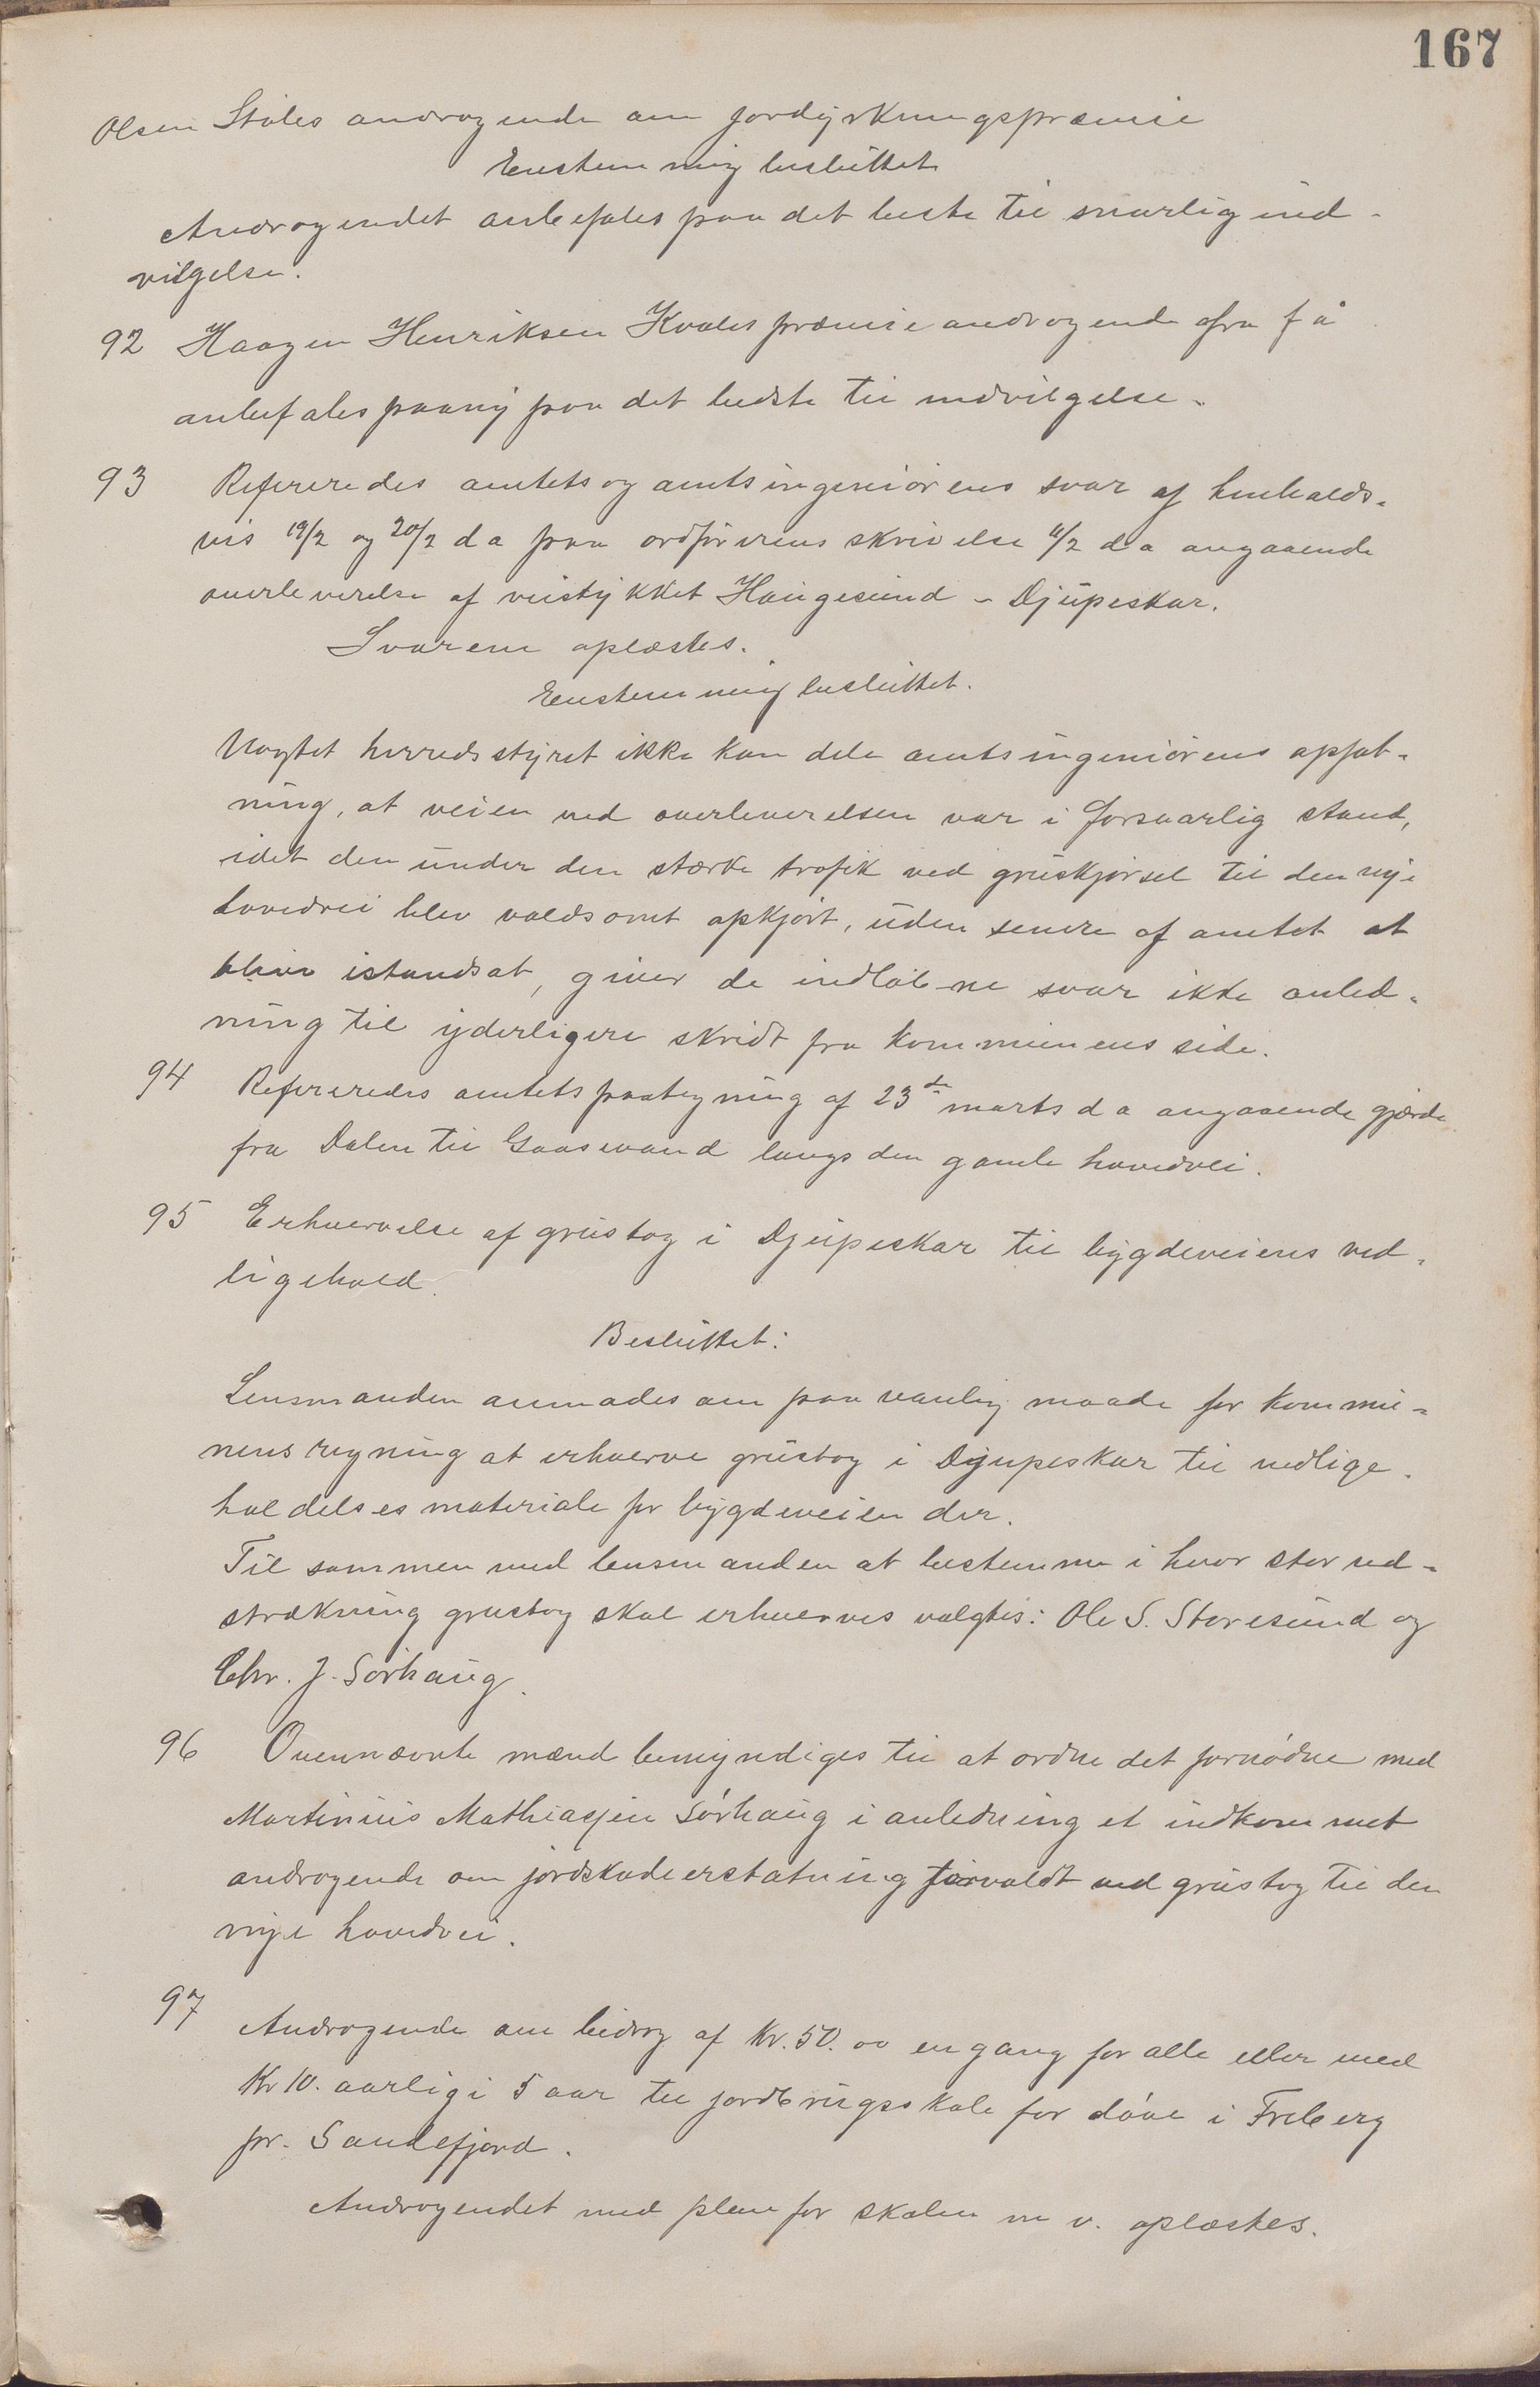 167
Olsen Stoles andragende om jordyrkningspræmie
Enstemmig besluttet
Andragendet anbefales paa det beste til snarlig ind-
vilgelse.
92 Haagen Henriksen Kvales præmieandragende fra f å
anbefales paany paa det bedste til indvilgelse.
93 Refereredes amtets og amtsingeniørens svar af henholds-
vis 19/2 og 20/2 d a paa ordførerens skrivelse 11/2 d a angaaende
overleverelse af veistykket Haugesund - Djupeskar.
Svarene oplæstes.
Enstemmig besluttet.
Uagtet herredsstyret ikke kan dele amtsingeniørens opfat-
ning, at veien ved overleverelsen var i forsvarlig stand,
idet den under den stærke trafik ved gruskjørsel til den nye
hovedvei blev voldsomt opkjørt, uden senere af amtet at
blive istandsat, giver de indløbne svar ikke anled-
ning til yderligere skridt fra kommunens side.
94 Refereredes amtets paategning af 23de marts d a angaaende gjærde
fra Dalen til Gaasevand langs den gamle hovedvei.
95 Erhvervelse af grustag i Djupeskar til bygdeveiens ved-
ligehold.
Besluttet:
Lensmanden anmodes om paa vanlig maade for kommu-
nens regning at erhverve grustag i Djupeskar til vedlige-
holdelsesmateriale for bygdeveien der.
Til sammen med lensmanden at bestemme i hvor stor ud-
strækning grustag skal erhverves valgtes: Ole S. Storesund og
Chr. J. Sørhaug.
96 Ovennævnte mænd bemyndiges til at ordne det fornødne med
Martinius Mathiassen Sørhaug i anledning et indkommet
andragende om jordskadeerstatning forvoldt ved grustag til den
nye hovedvei.
97
Andragende om bidrag af Kr. 50.00 en gang for alle eller med
Kr 10. aarlig i 5 aar til jordbrugsskole for døve i Freberg
pr. Sandefjord.
Andragendet med plan for skolen m v. oplæstes.